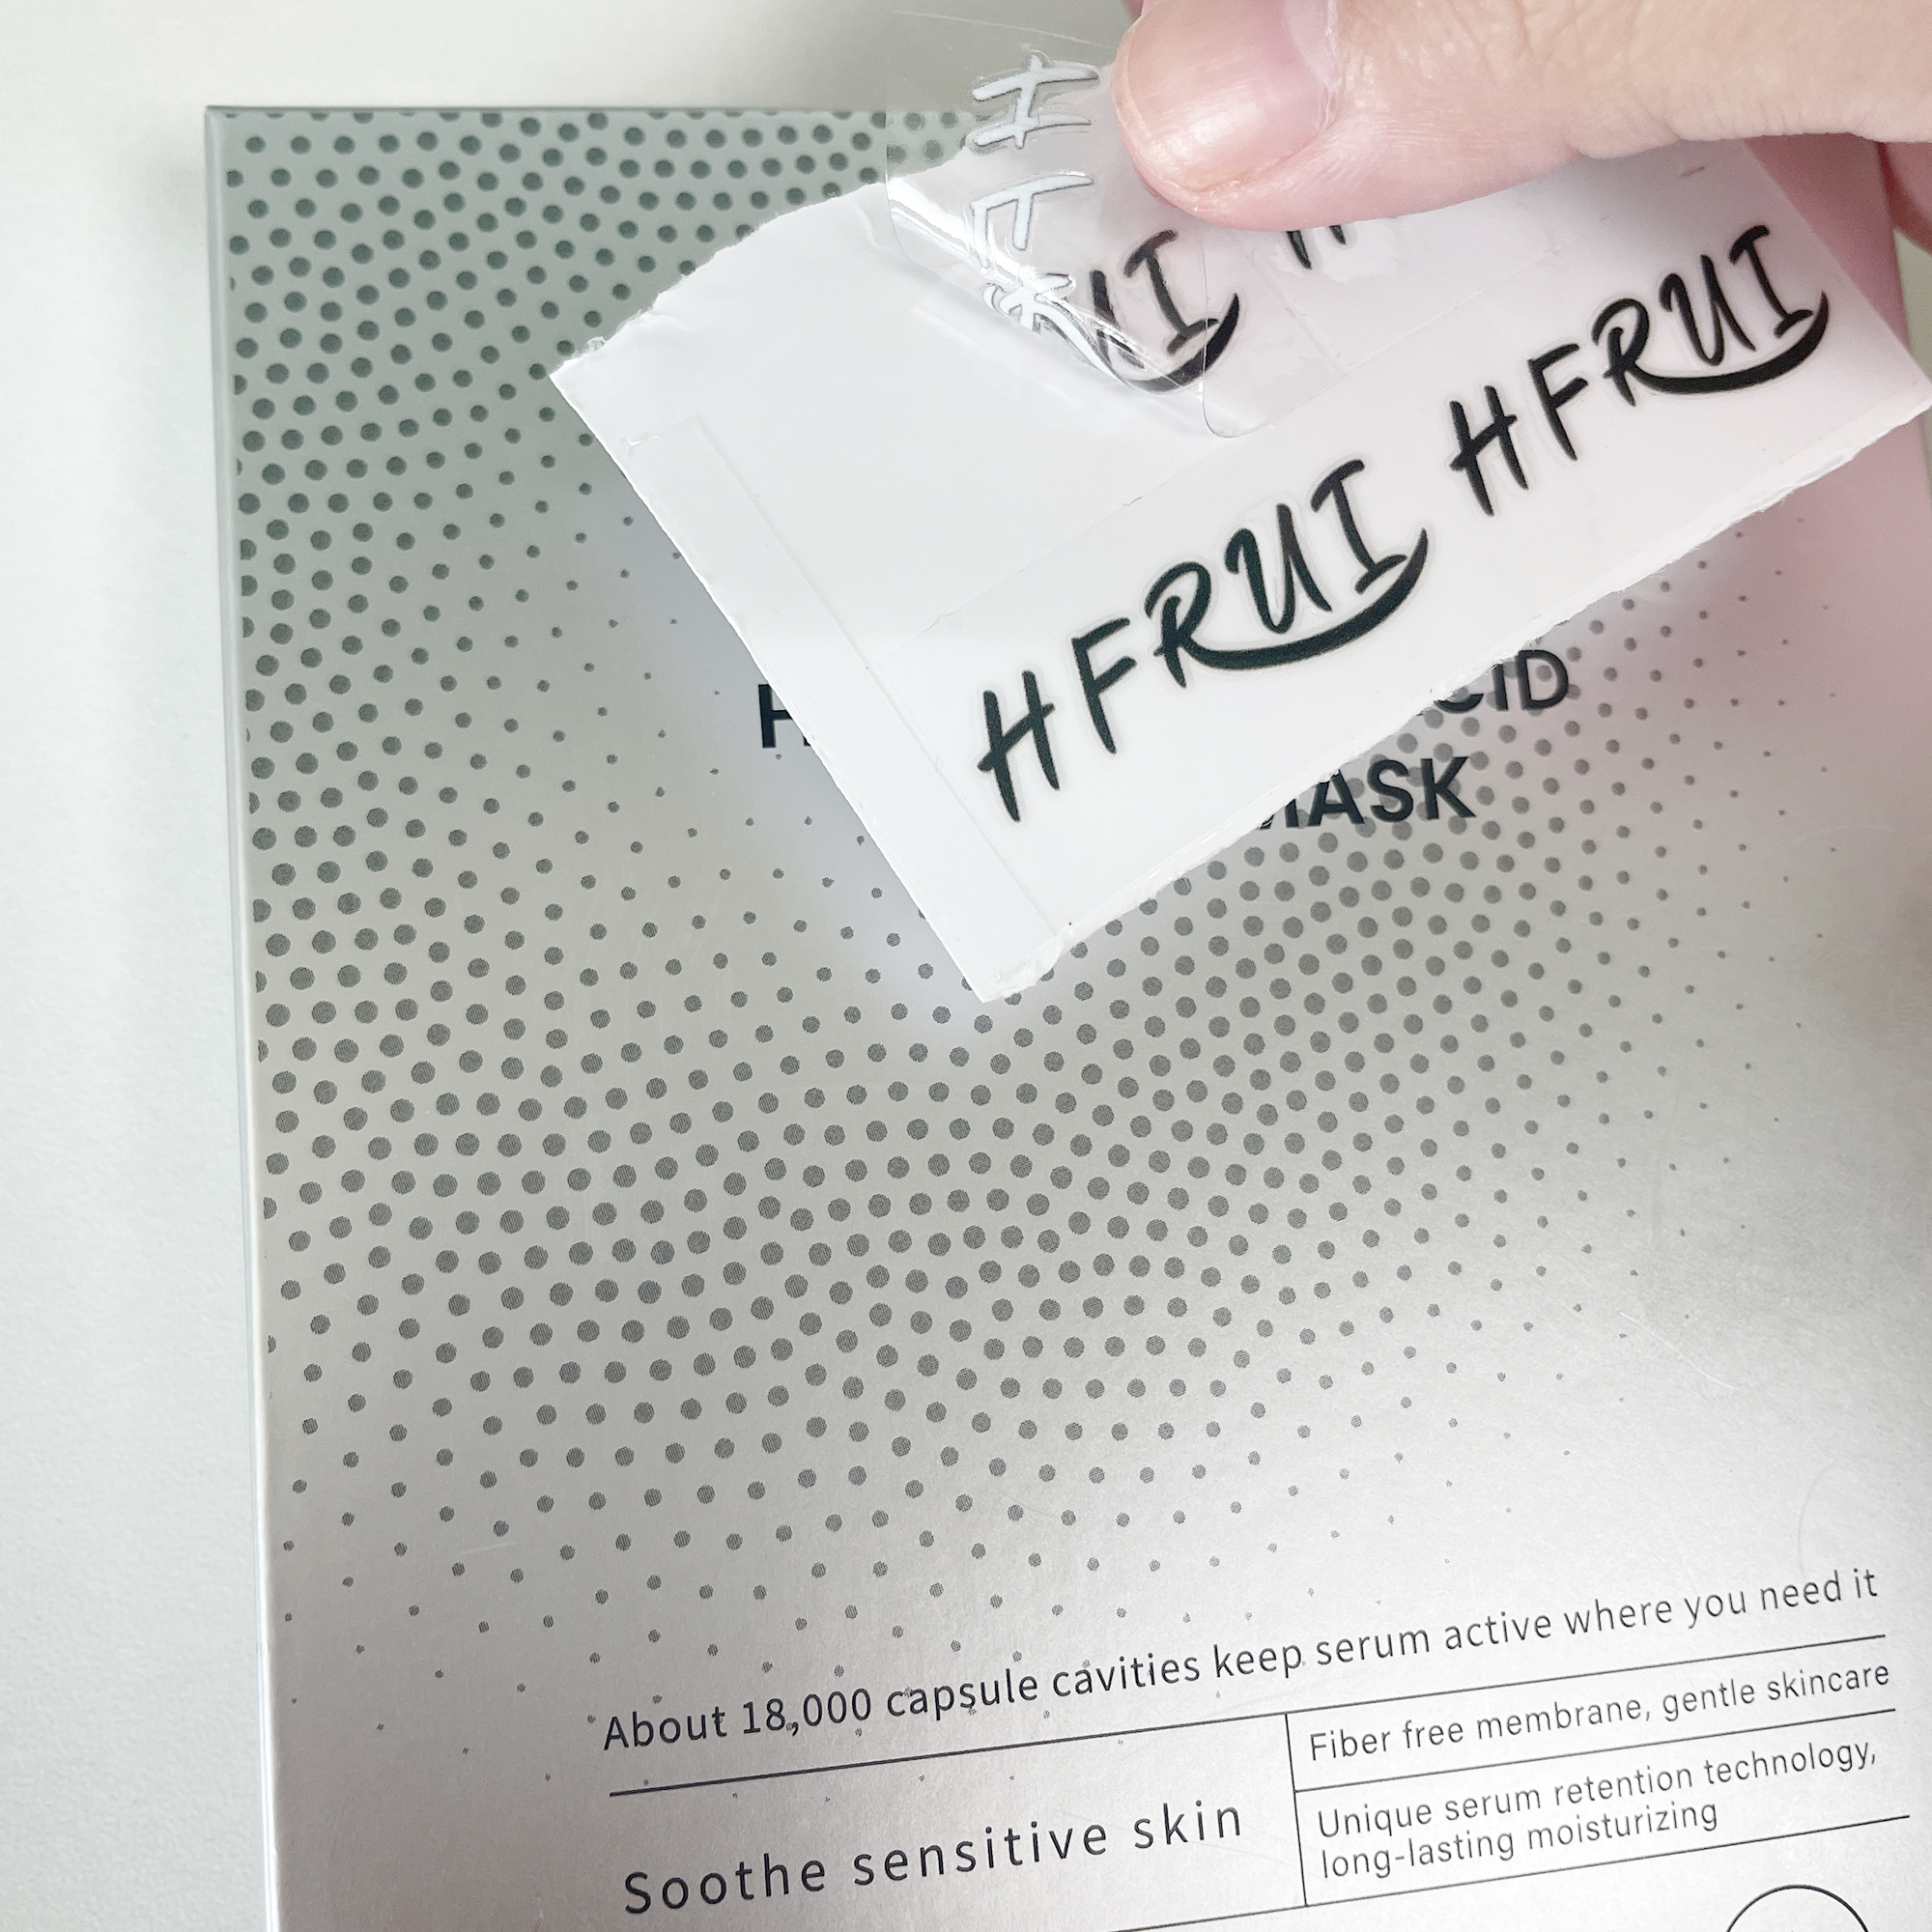 HFRUI HFRUI
MASK
About 18,000 capsule cavities keep serum active where you need it
Soothe sensitive skin
Fiber free membrane, gentle skincare
Unique serum retention technology,
long-lasting moisturizing